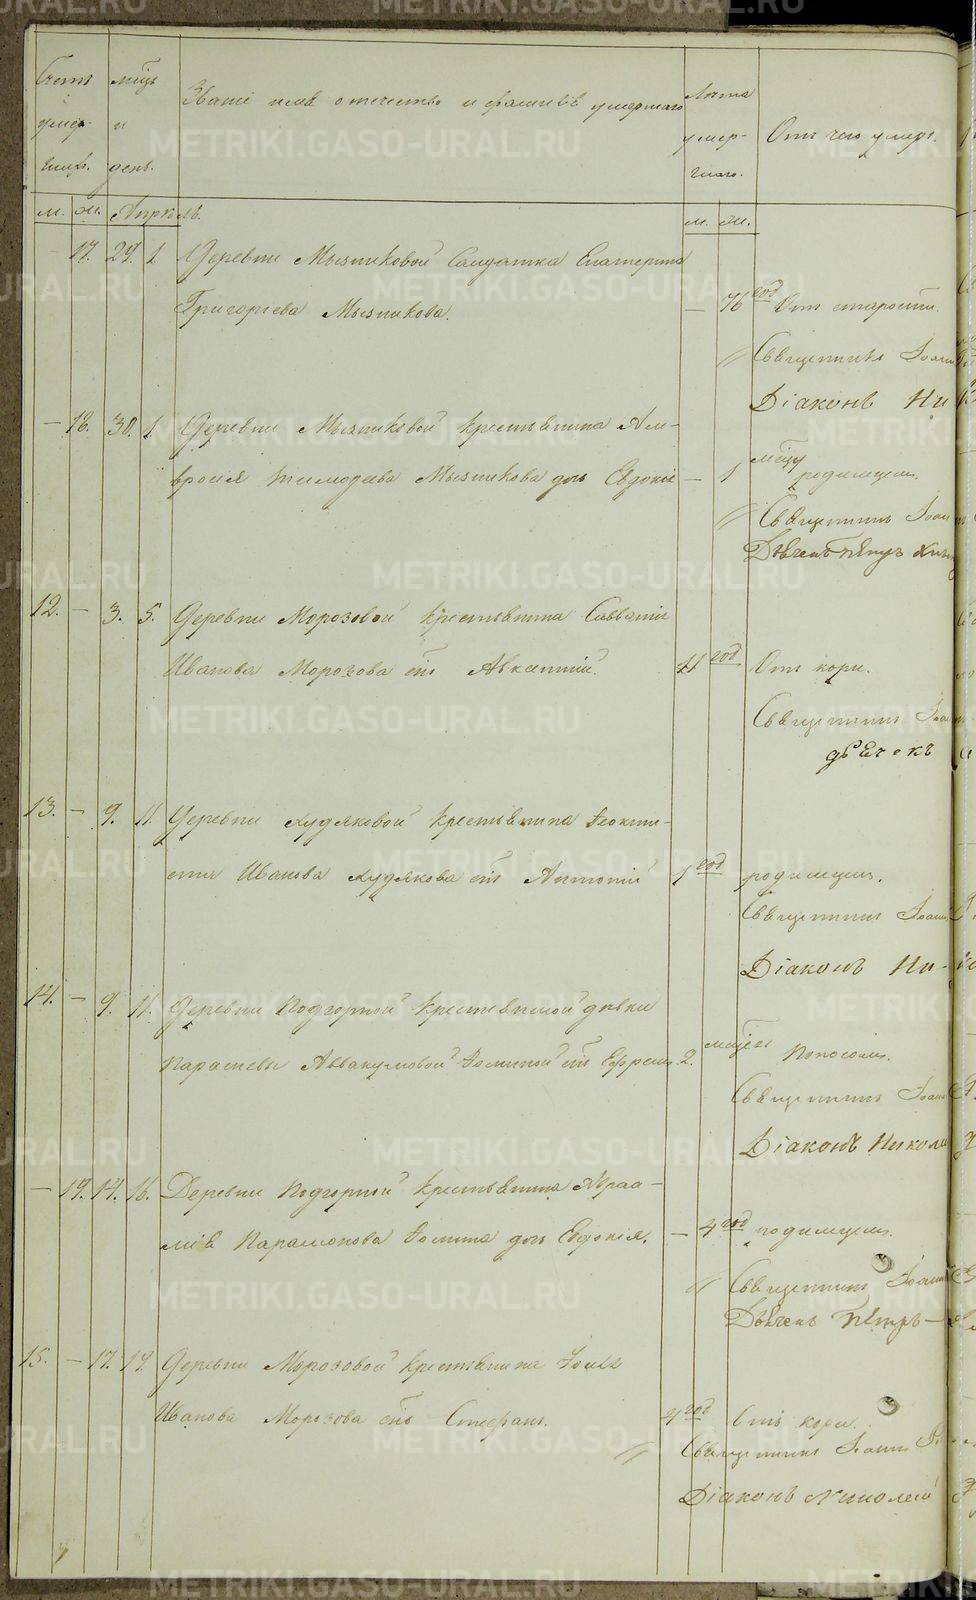 Счетъ умер- шихъ. мцъ и день. Званіе имя отчество и фамилія умершаго Лѣта умер- шаго. Отъ чего умеръ.
м. ж. Апрѣль. м. ж.
17. 29. 1. Деревни Мызниковой Салдатка Екатерина
Григорьева Мызникова. — 76 год Отъ старости.
Священникъ Іоаннъ
Діаконъ Ни
— 18. 30. 1. Деревни Мызниковой крестьянина Ам-
вросія Тимофеева Мызникова дочь Евдокія — 1 мсцъ родимцемъ.
Священникъ Іоаннъ
Дьячекъ Петръ
12. — 3. 5. Деревни Морозовой крестьянина Савватія
Иванова Морозова сынъ Авксентій. год Отъ кори.
Священникъ Іоаннъ
дьячокъ
13. — 9. 11. Деревни Худяковой крестьянина Феокти-
ста Иванова Худякова сынъ Антоній 1 год родимцемъ.
Священникъ Іоаннъ
Діаконъ Ни-
14. — 9. 11. Деревни Подгорной крестьянской дѣвки
Параскевы Аввакумовой Фоминой сынъ Ефремъ 2. мсца Поносомъ.
Священникъ Іоаннъ
Діаконъ Никола
— 19. 14. 16. Деревни Подгорной крестьянина Авраа-
мія Парамонова Фомина дочь Евдокія. — 4 год родимцемъ.
Священникъ Іоаннъ
Дьячекъ Петръ —
15. — 17. 19. Деревни Морозовой крестьянина Фомы
Иванова Морозова сынъ Стефанъ. год Отъ кори.
Священникъ Іоаннъ
Діаконъ Николай
METRIKI.GASO-URAL.RU